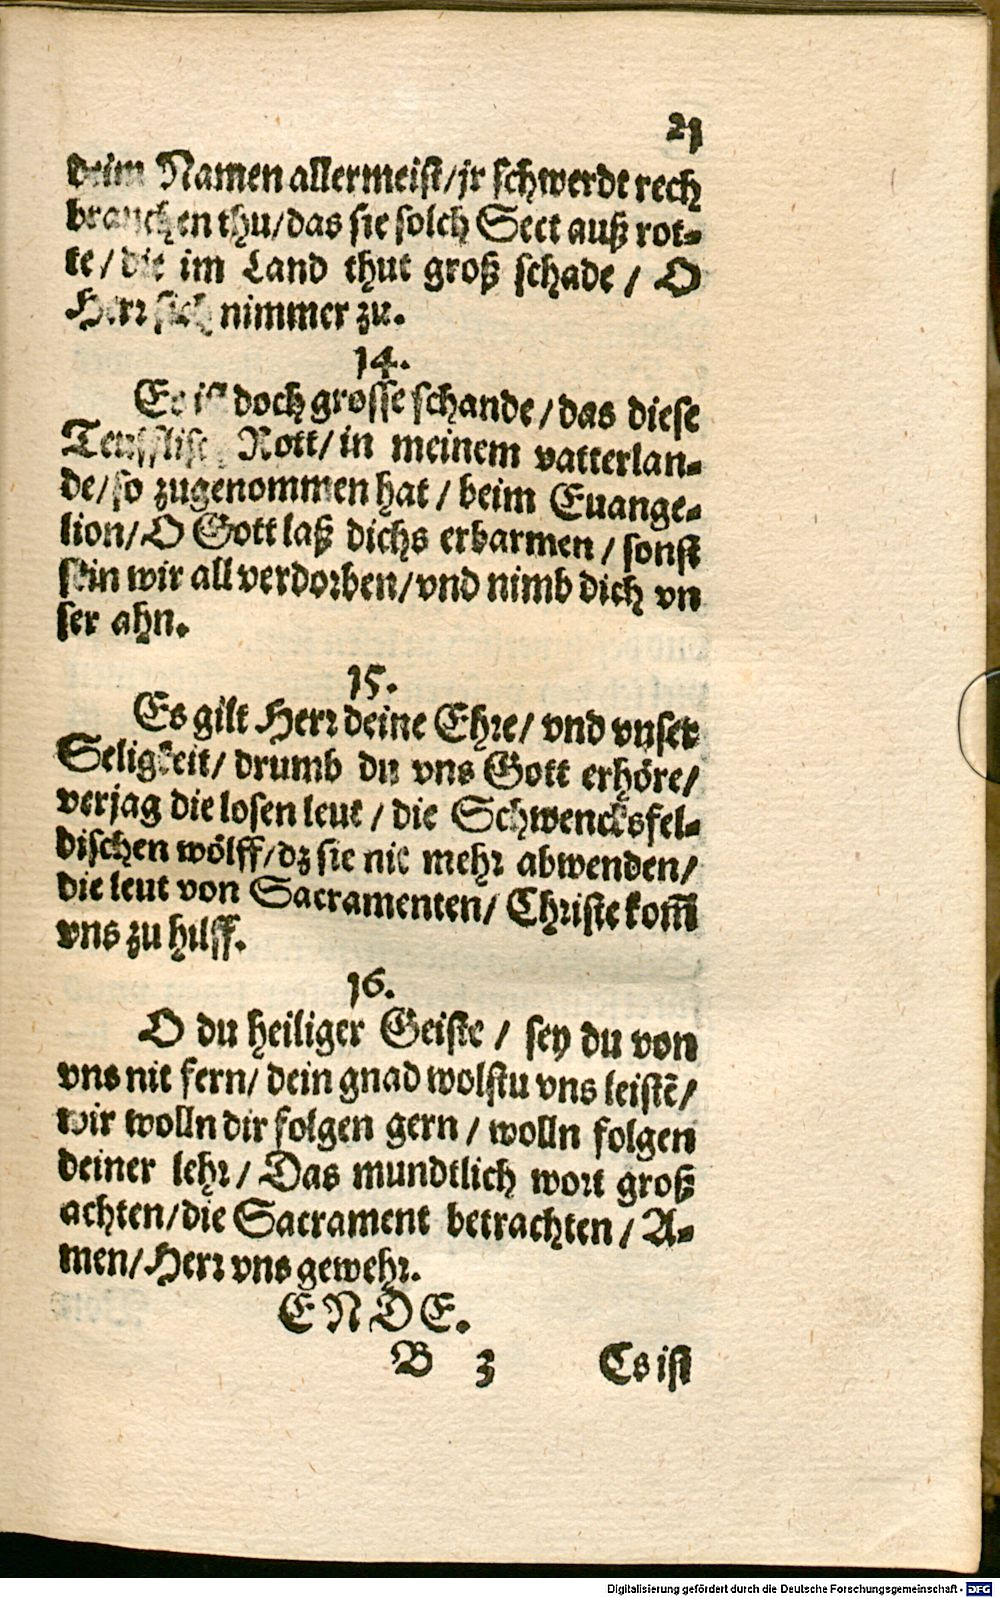 21
deim Namen allermeist/jr schwerdt rech
brauchen thu/das sie solch Sect auß rot-
te/die im Land thut groß schade / O
Herr sich nimmer zu.
14.
Es ist doch grosse schande/das diese
Teufflisch Rott/in meinem vatterlan-
de/so zugenommen hat/beim Euange-
lion/O Gott laß dichs erbarmen/sonst
sein wir all verdorben/vnd nimb dich vn
ser ahn.
15.
Es gilt Herr deine Ehre/ vnd vnser
Seligkeit/ drumb du vns Gott erhöre/
verjag die losen leut / die Schwencksfel-
dischen wölff/dz sie nit mehr abwenden/
die leut von Sacramenten/ Christe kom̃
vns zu hilff.
16.
O du heiliger Geiste / sey du von
vns nit fern/ dein gnad wolstu vns leistẽ/
wir wolln dir folgen gern / wolln folgen
deiner lehr/ Das mundtlich wort groß
achten/die Sacrament betrachten / A-
men/Herr vns gewehr.
ENDE.
B 3 Es ist
Digitalisierung gefördert durch die Deutsche Forschungsgemeinschaft - DFG